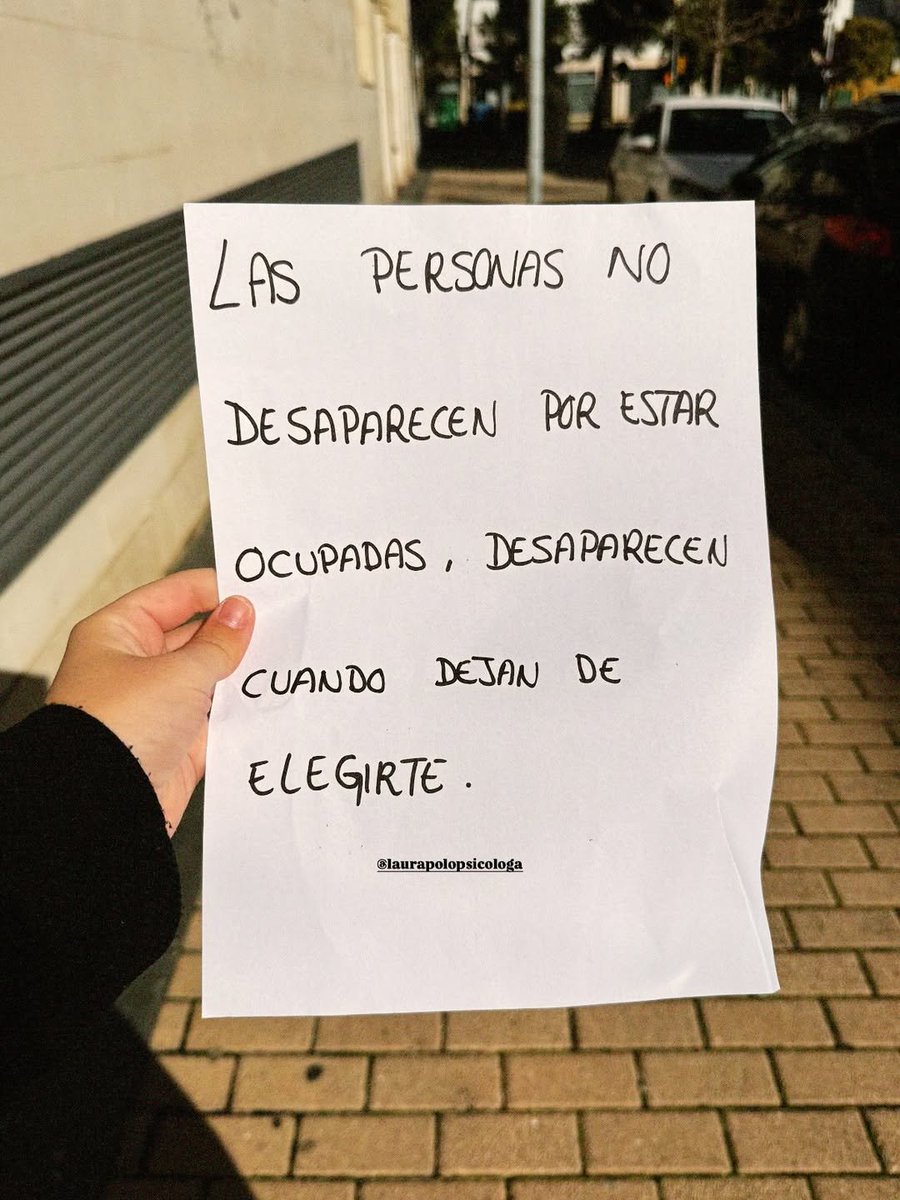 LAS PERSONAS NO
DESAPARECEN POR ESTAR
OCUPADAS, DESAPARECEN
CUANDO DEJAN DE
ELEGIRTE.
@laurapolopsicologa